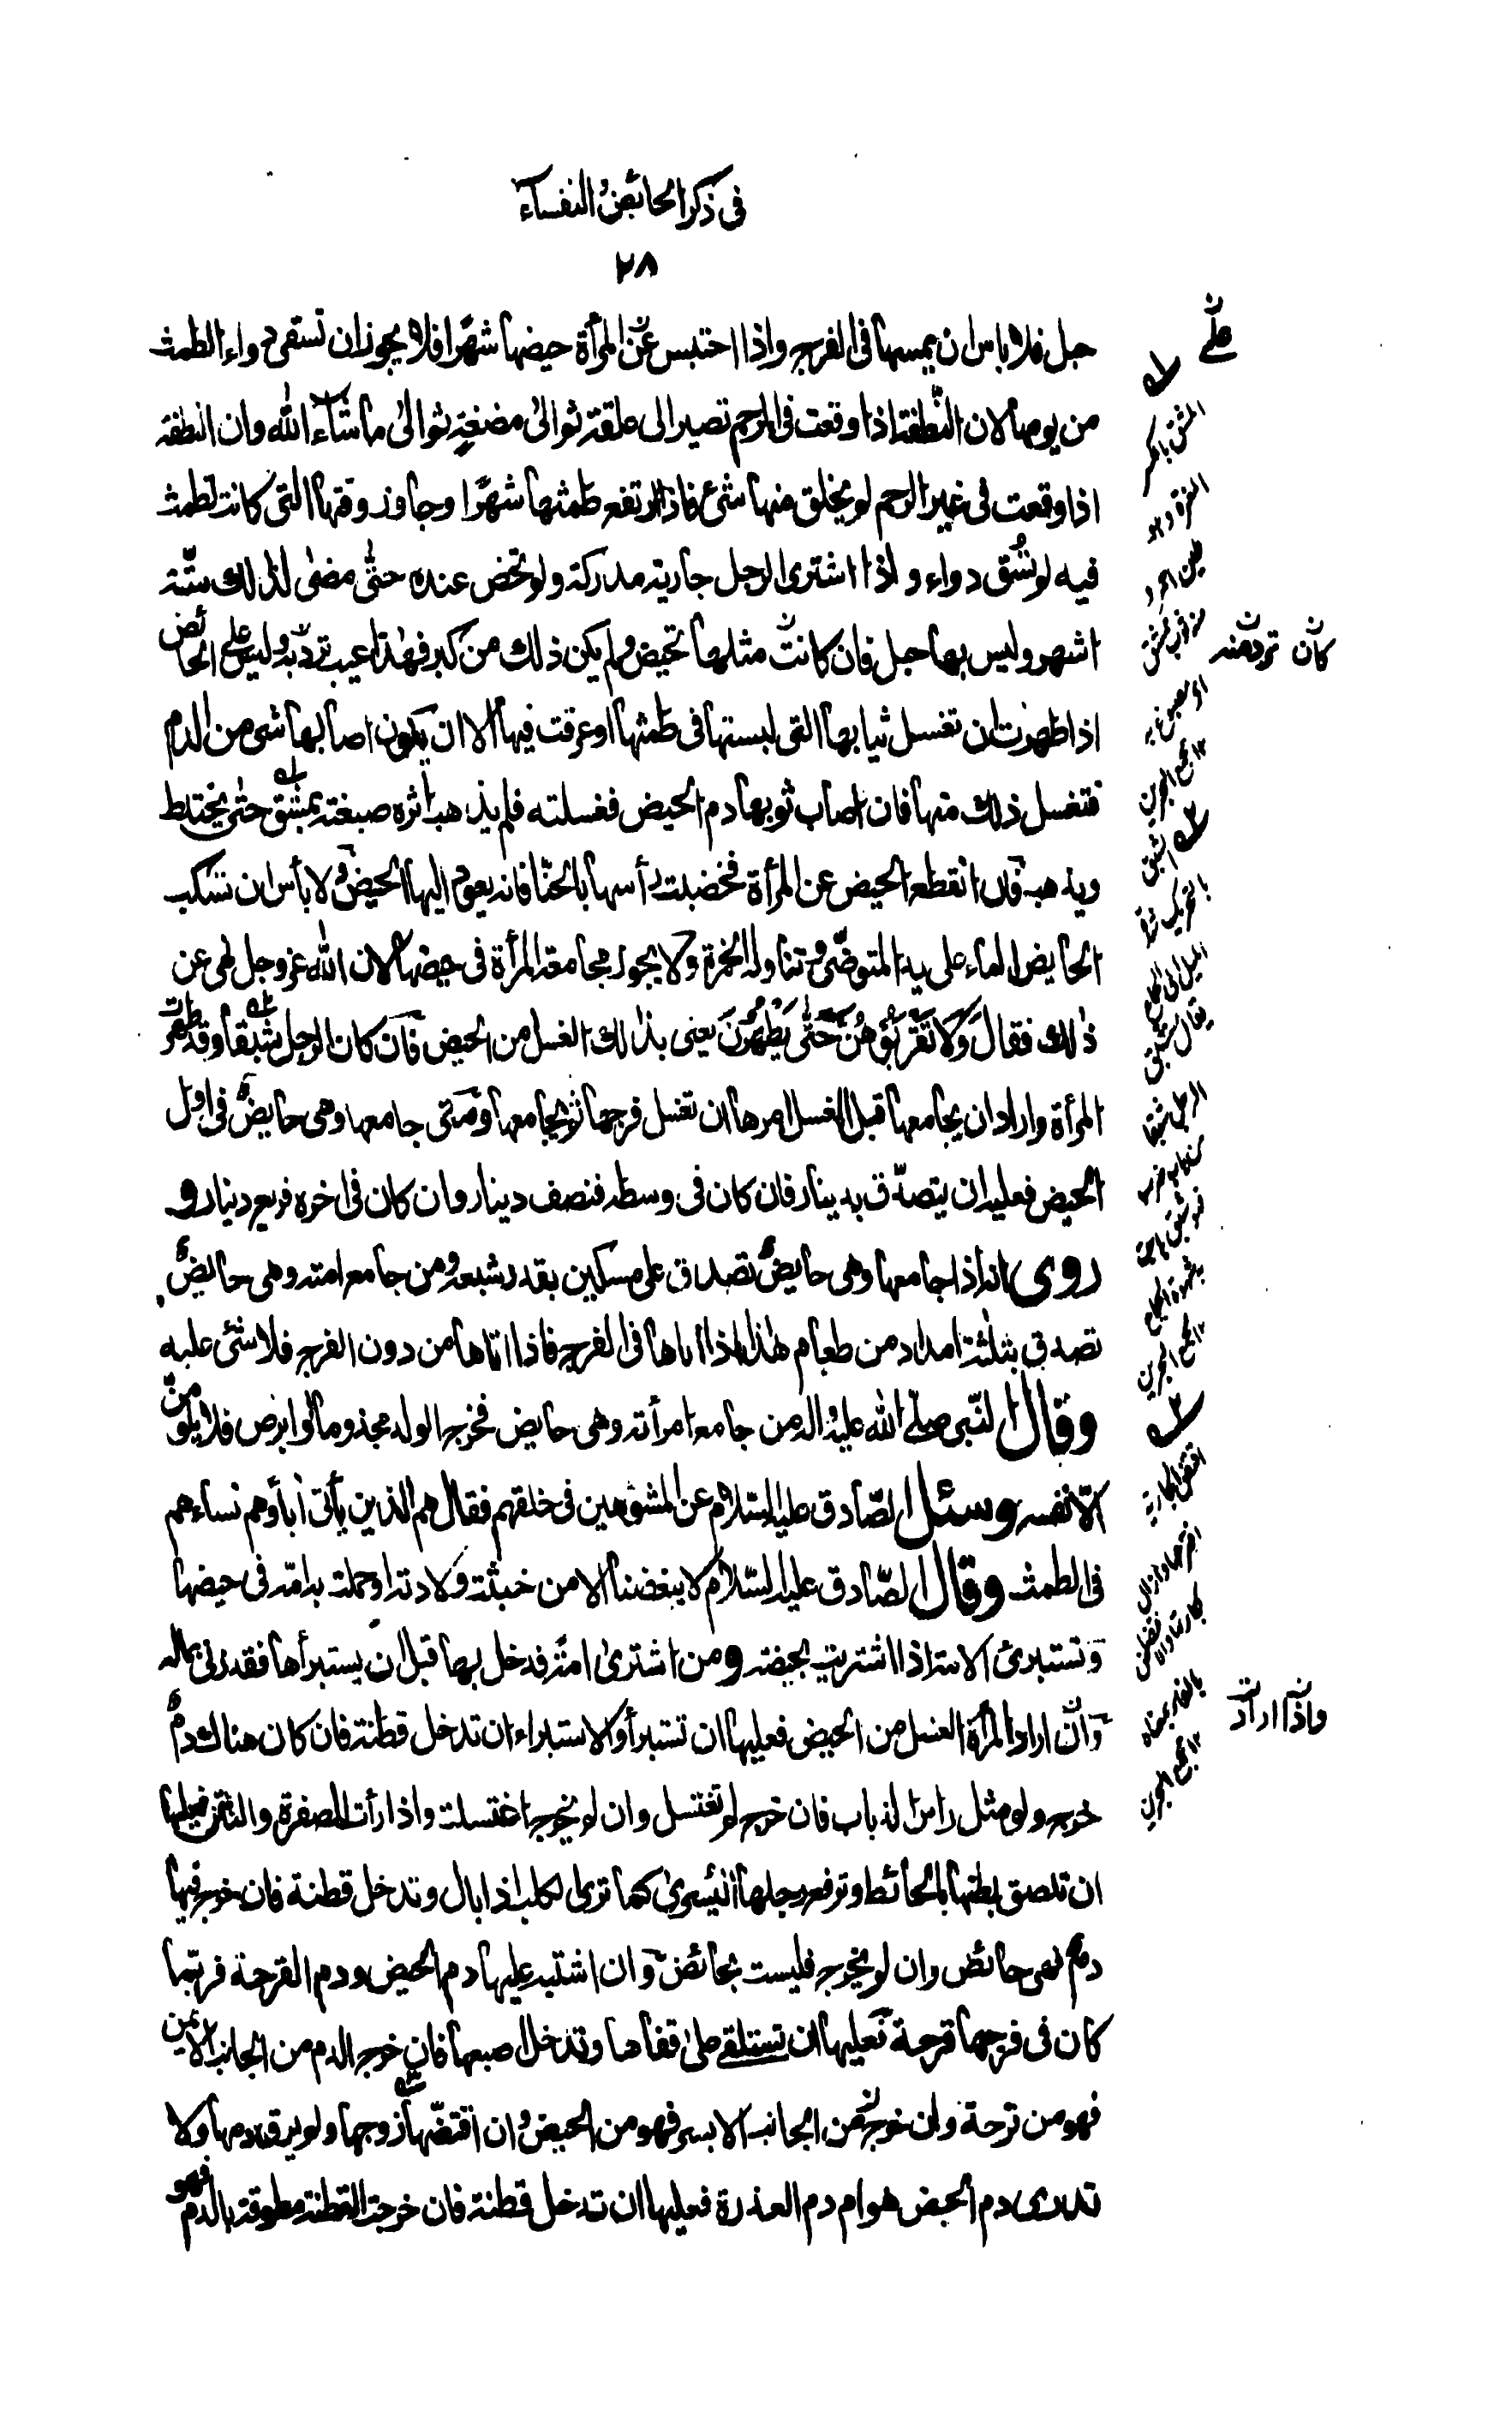 فى ذكر الحائض والنفساء
٢٨
حبل فلا باس ان يمسها فى الفرج واذا احتبس عن المرأة حيضها شهرا فلا يجوز ان تسقى دواء الطمث
من يومها لان النطفة اذا وقعت فى الرحم تصير الى علقة ثم الى مضغة ثم الى ما شاء الله وان النطفة
اذا وقعت فى غير الرحم لم يخلق منها شئ فاذا ارتفع طمثها شهرا وجاوز وقتها التى كانت تطمث
فيه لم تسق دواء واذا اشترى الرجل جارية مدركة ولم تحض عنده حتى مضى لذلك ستة
اشهر وليس بها حبل فان كانت مثلها تحيض ولم يكن ذلك من كبر فهذا عيب ترد به وليس على الحائض
اذا طهرت ان تغسل ثيابها التى لبستها فى طمثها او عرقت فيها الا ان يكون اصابها شئ من الدم
فتغسل ذلك منها فان اصاب ثوبها دم الحيض فغسلته فلم يذهب اثره صبغته بمشق حتى يختلط
ويذهب فان انقطع الحيض عن المرأة فخضبت رأسها بالحنا فانه يعود اليها الحيض ولا بأس ان تسكب
الحايض الماء على يد المتوضى وتناوله الخمرة ولا يجوز مجامعة المرأة فى حيضها لان الله عز وجل نهى عن
ذلك فقال وَلَا تَقْرَبُوهُنَّ حَتّٰى يَطْهُرْنَ يعنى بذلك الغسل من الحيض فان كان الرجل شبقا وقد طهرت
المرأة واراد ان يجامعها قبل الغسل امرها ان تغسل فرجها ثم يجامعها ومتى جامعها وهى حايض فى اول
الحيض فعليه ان يتصدق بدينار فان كان فى وسطه فنصف دينار وان كان فى اخره فربع دينار و
روى انه اذا جامعها وهى حايض تصدق على مسكين بقدر شبعه ومن جامع امته وهى حايض
تصدق بثلثة امداد من طعام هذا اذا اتاها فى الفرج فاذا اتاها من دون الفرج فلا شئ عليه
وقال النبى صلى الله عليه واله من جامع امرأته وهى حايض فخرج الولد مجذوما او ابرص فلا يلومن
الا نفسه وسئل الصادق عليه السلام عن المشوهين فى خلقهم فقال هم الذين يأتى اباؤهم نساءهم
فى الطمث وقال الصادق عليه السلام لا يبغضنا الا من خبثت ولادته او حملت به امه فى حيضها
وتستبرئ الامة اذا اشتريت بحيضة ومن اشترى امة فدخل بها قبل ان يستبرأها فقد زنى بماله
وان ارادت المرأة الغسل من الحيض فعليها ان تستبرأ والاستبراء ان تدخل قطنة فان كان هناك دم
خرج ولو مثل راس الذباب فان خرج لم تغتسل وان لم يخرج اغتسلت واذا رأت الصفرة والنتن فعليها
ان تلصق بطنها بالحائط وترفع رجلها اليسرى كما ترى الكلب اذا بال وتدخل قطنة فان خرج فيها
دم فهى حائض وان لم يخرج فليست بحائض وان اشتبه عليها دم الحيض ودم القرحة فربما
كان فى فرجها قرحة فعليها ان تستلقى على قفاها وتدخل اصبعها فان خرج الدم من الجانب الايمن
فهو من قرحة وان خرج من الجانب الايسر فهو من الحيض وان افتضها زوجها ولم يرق دمها ولا
تدرى دم الحيض هو ام دم العذرة فعليها ان تدخل قطنة فان خرجت القطنة مطوقة بالدم فهو
على
كان ترد منه
واذا ارادت
المشق بالكسر
المغرة وهو
طين احمر
مجمع البحرين
الشبق
بالتحريك شدة
الميل الى الجماع
يقال شبق
الرجل شبقا
مجمع البحرين
افتض الجارية
مجمع البحرين